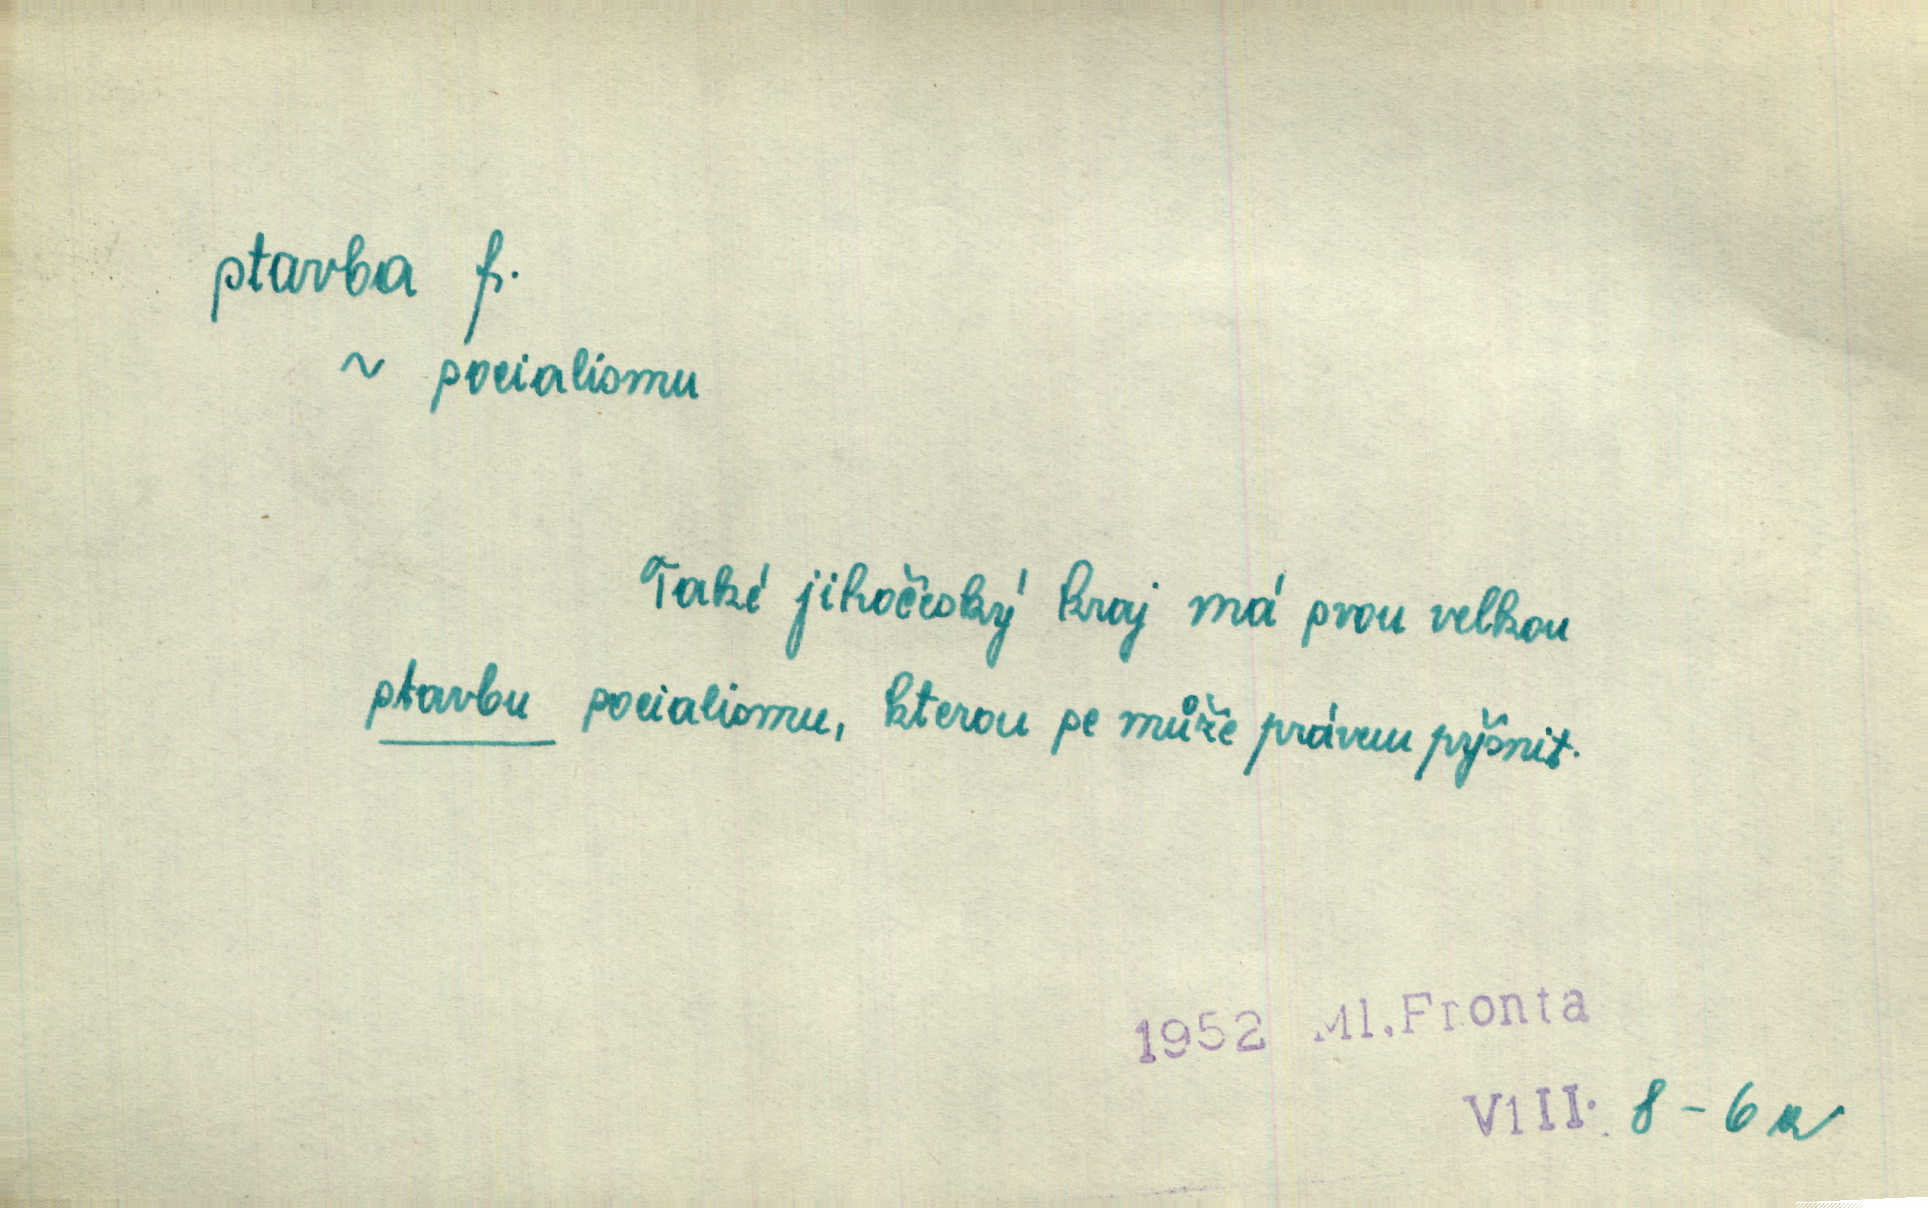 stavba f.
~ socialismu
Také jihočeský kraj má svou velkou
stavbu socialismu, kterou se může právem pyšnit.
1952 Ml.Fronta
VIII. 8 - 6 a